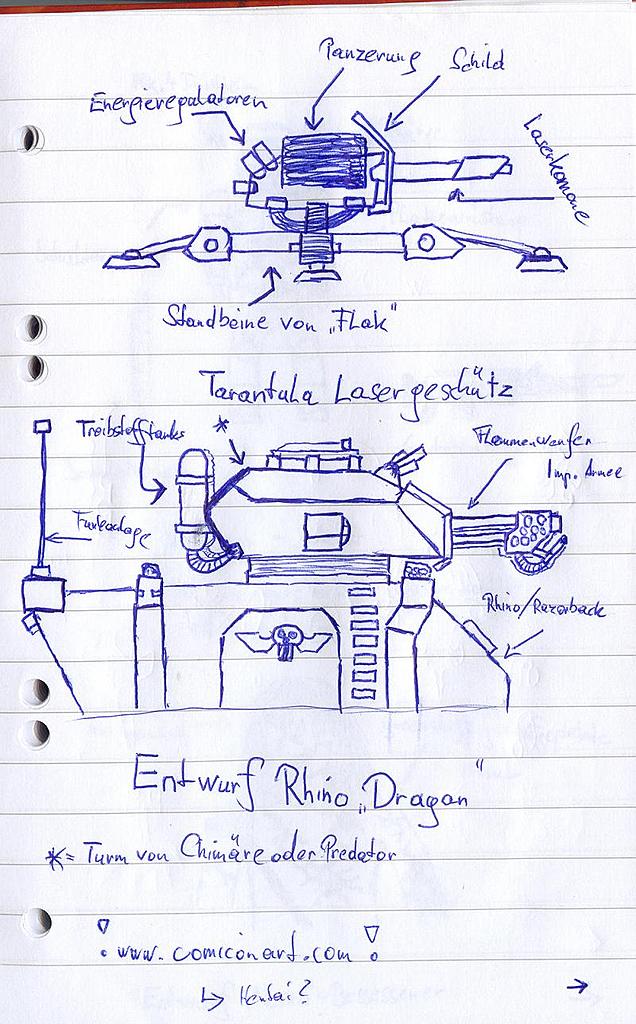 Panzerung
Schild
Energieregulatoren
Laserkanone
Standbeine von „Flak“
Tarantula Lasergeschütz
Treibstofftanks
*
Flammenwerfer
Imp. Armee
Funkanlage
Rhino/Razorback
Entwurf Rhino „Dragon“
*= Turm von Chimäre oder Predator
www.comiconart.com
Hentai?